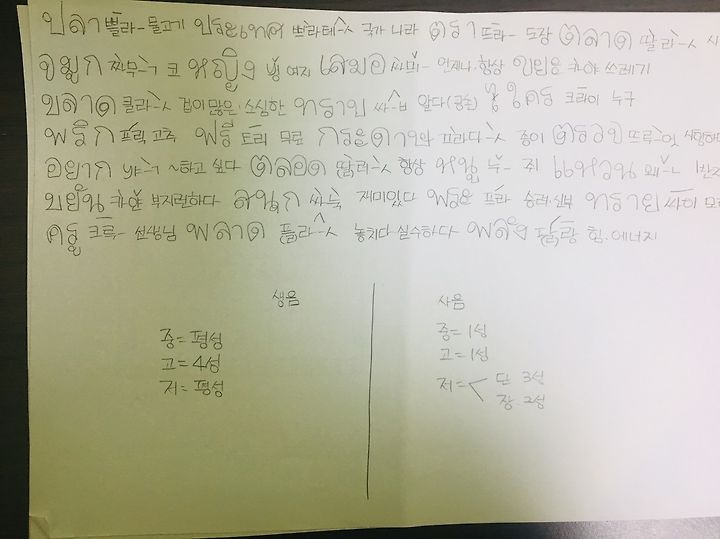 ปลา 쁠라- 물고기 ประเทศ 쁘라테^ㅅ 국가 나라 ตรา 뜨라- 도장 ตลาด 딸라-ㅅ 시
จมูก 짜무-ㄱ 코 หญิง 잉 여자 เสมอ 싸머- 언제나 항상 ขยะ 카야 쓰레기
ขลาด 클라-ㅅ 겁이 많은, 소심한 ทราบ 싸-ㅂ 알다(공손) ใคร 크라이 누구
พริก 프릭 고추 ฟรี 프리 무료 กระดาษ 끄라다-ㅅ 종이 ตรวจ 뜨루-엇
อยาก 나야-ㄱ ~하고 싶다 ตลอด 딸러-ㅅ 항상 หนู 누- 쥐 แหวน 왜-ㄴ
ขยัน 카얀 부지런하다 สนุก 싸눅 재미있다 พระ 프라 승려.신부 ทราย 싸이 모
ครู 크루- 선생님 พลาด 플라-^ㅅ 놓치다 실수하다 พลัง 팔랑 힘.에너지
생음 사음
중=평성 중=1성
고=4성 고=1성
저=평성 저=< 단 3성
장 2성